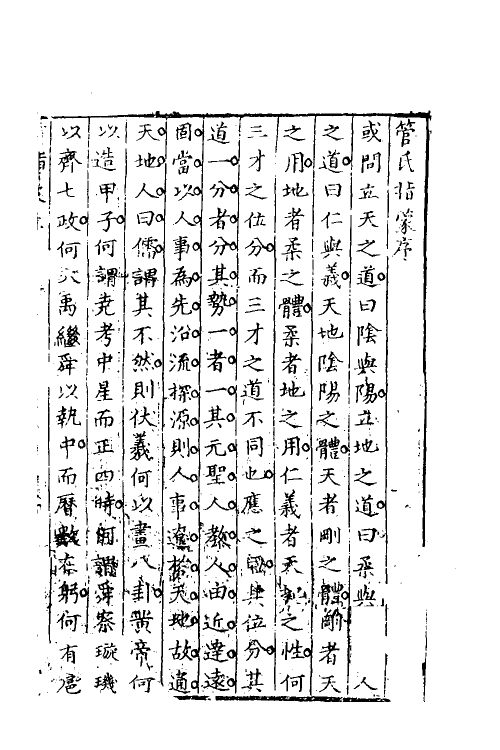 管氏指蒙序
或問立天之道曰陰與陽立地之道曰柔與　人
之道曰仁與義天地陰陽之體天者剛之體剛者天
之用地者柔之體柔者地之用仁義者天之性何
三才之位分而三才之道不同也應之曰其位分其
道一分者分其勢一者一其元聖人教人由近達遠
固當以人事為先沿流探源則人事於天地故通
天地人曰儒謂其不然則伏羲何以畫八卦黃帝何
以造甲子何謂堯考中星而正四時何謂舜察璇璣
以齊七政何以禹繼舜以執中而曆數在躬何有扈